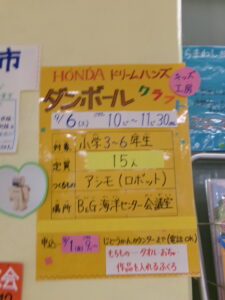 市
HONDA ドリームハンズ
キッズ
工房
ダンボール クラフト
9/6(土) 10:00〜11:30
対象 小学3〜6年生
定員 15人
つくるもの アシモ(ロボット)
場所 B&G海洋センター会議室
申込 8/1(金)
じどうかんカウンターまで(電話OK)
もちもの…タオル・おちゃ・
作品を入れるふくろ
会